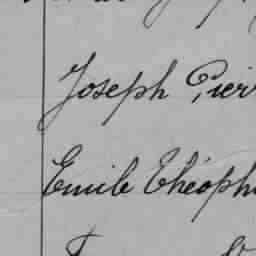 Joseph Pier
Emile Théoph